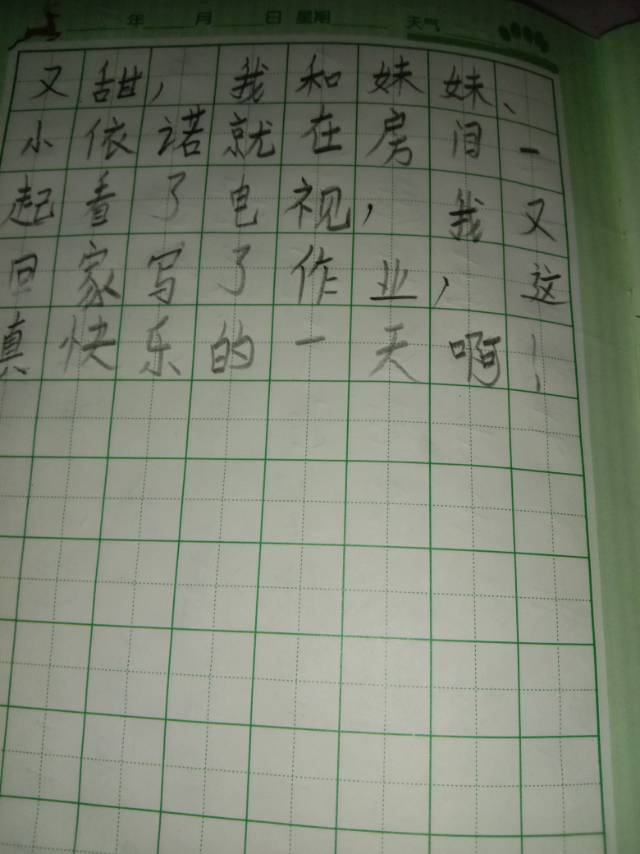 年 月 日 星期 天气
又甜，我和妹妹、
小依诺就在房间一
起看了电视，我又
回家写了作业，这
真快乐的一天啊！